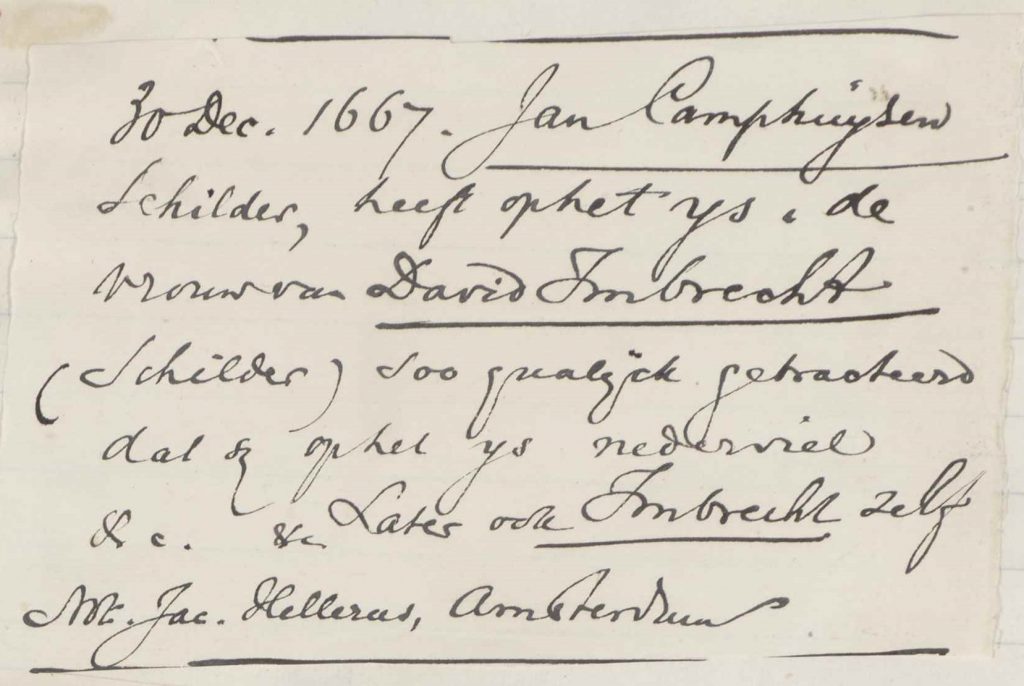 30 Dec. 1667. Jan Camphuÿsen
Schilder, heeft op het ys, de
vrouw van David Imbrecht
(Schilder) soo qualÿck getracteerd
dat sy op het ys nederviel
&c. &c Later ook Imbrecht zelf
Not. Jac. Hellerus, Amsterdam